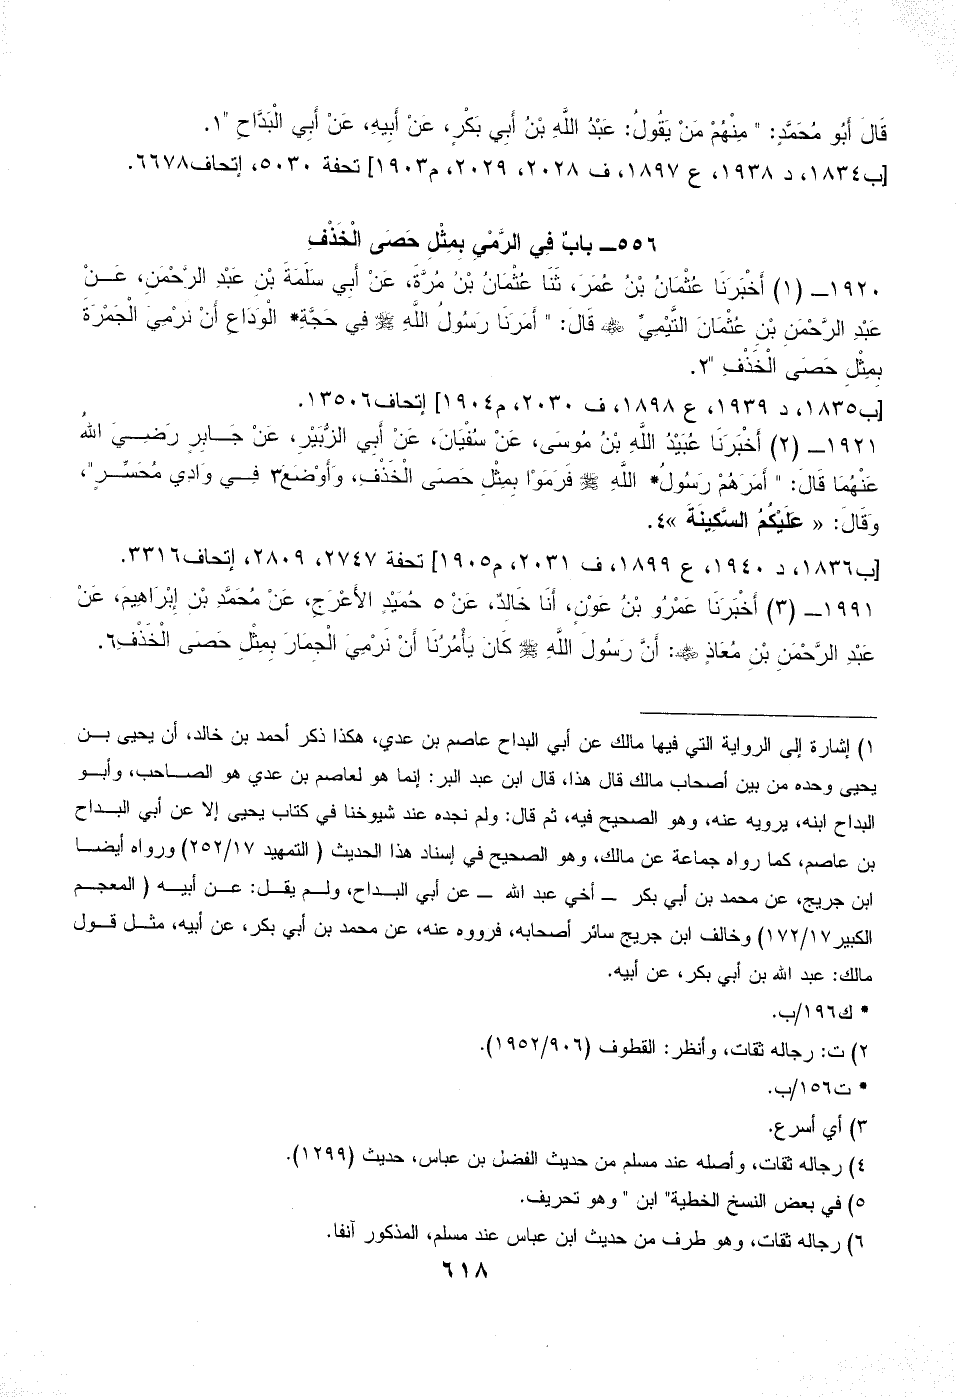 قَالَ أَبُو مُحَمَّدٍ: " مِنْهُمْ مَنْ يَقُولُ: عَبْدُ اللَّهِ بْنُ أَبِي بَكْرٍ، عَنْ أَبِيهِ، عَنْ أَبِي الْبَدَّاحِ "١.
[ب١٨٣٤، د ١٩٣٨، ع ١٨٩٧، ف ٢٠٢٨، ٢٠٢٩، م١٩٠٣] تحفة ٥٠٣٠، إتحاف٦٦٧٨.
٥٥٦ــ بابٌ فِي الرَّمْيِ بِمِثْلِ حَصَى الْخَذْفِ
١٩٢٠ــ (١) أَخْبَرَنَا عُثْمَانُ بْنُ عُمَرَ، ثَنَا عُثْمَانُ بْنُ مُرَّةَ، عَنْ أَبِي سَلَمَةَ بْنِ عَبْدِ الرَّحْمَنِ، عَـــنْ
عَبْدِ الرَّحْمَنِ بْنِ عُثْمَانَ التَّيْمِيِّ ﷺ قَالَ: " أَمَرَنَا رَسُولُ اللَّهِ ﷺ فِي حَجَّةِ* الْوَدَاعِ أَنْ نَرْمِيَ الْجَمْرَةَ
بِمِثْلِ حَصَى الْخَذْفِ "٢.
[ب١٨٣٥، د ١٩٣٩، ع ١٨٩٨، ف ٢٠٣٠، م١٩٠٤] إتحاف١٣٥٠٦.
١٩٢١ــ (٢) أَخْبَرَنَا عُبَيْدُ اللَّهِ بْنُ مُوسَى، عَنْ سُفْيَانَ، عَنْ أَبِي الزُّبَيْرِ، عَنْ جَــابِرٍ رَضِــيَ اللهُ
عَنْهُمَا قَالَ: " أَمَرَهُمْ رَسُولُ* اللَّهِ ﷺ فَرَمَوْا بِمِثْلِ حَصَى الْخَذْفِ، وَأَوْضَعَ٣ فِــي وَادِي مُحَسِّــرٍ"،
وَقَالَ: « عَلَيْكُمُ السَّكِينَةَ »٤.
[ب١٨٣٦، د ١٩٤٠، ع ١٨٩٩، ف ٢٠٣١، م١٩٠٥] تحفة ٢٧٤٧، ٢٨٠٩، إتحاف٣٣١٦.
١٩٩١ــ (٣) أَخْبَرَنَا عَمْرُو بْنُ عَوْنٍ، أَنَا خَالِدٌ، عَنْ ٥ حُمَيْدٍ الأَعْرَجِ، عَنْ مُحَمَّدِ بْنِ إِبْرَاهِيمَ، عَنْ
عَبْدِ الرَّحْمَنِ بْنِ مُعَاذٍ ﷺ: أَنَّ رَسُولَ اللَّهِ ﷺ كَانَ يَأْمُرُنَا أَنْ نَرْمِيَ الْجِمَارَ بِمِثْلِ حَصَى الْخَذْفِ٦.
١) إشارة إلى الرواية التي فيها مالك عن أبي البداح عاصم بن عدي، هكذا ذكر أحمد بن خالد، أن يحيى بــن
يحيى وحده من بين أصحاب مالك قال هذا، قال ابن عبد البر: إنما هو لعاصم بن عدي هو الصــاحب، وأبــو
البداح ابنه، يرويه عنه، وهو الصحيح فيه، ثم قال: ولم نجده عند شيوخنا في كتاب يحيى إلا عن أبي البــداح
بن عاصم، كما رواه جماعة عن مالك، وهو الصحيح في إسناد هذا الحديث ( التمهيد ٢٥٢/١٧) ورواه أيضــا
ابن جريج، عن محمد بن أبي بكر ــ أخي عبد الله ــ عن أبي البــداح، ولــم يقــل: عــن أبيــه ( المعجــم
الكبير١٧٢/١٧) وخالف ابن جريج سائر أصحابه، فرووه عنه، عن محمد بن أبي بكر، عن أبيه، مثــل قــول
مالك: عبد الله بن أبي بكر، عن أبيه.
* ك١٩٦/ب.
٢) ت: رجاله ثقات، وأنظر: القطوف (١٩٥٢/٩٠٦).
* ت١٥٦/ب.
٣) أي أسرع.
٤) رجاله ثقات، وأصله عند مسلم من حديث الفضل بن عباس، حديث (١٢٩٩).
٥) في بعض النسخ الخطية" ابن " وهو تحريف.
٦) رجاله ثقات، وهو طرف من حديث ابن عباس عند مسلم، المذكور آنفا.
٦١٨